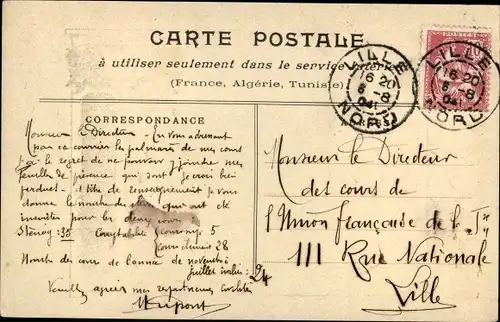 CARTE POSTALE
à utiliser seulement dans le service intérieur
(France, Algérie, Tunisie)
POSTES
LILLE
16 20
6 -8
04
NORD
LILLE
16 20
6 -8
04
NORD
CORRESPONDANCE
Monsieur le Directeur – En vous adressant
par ce courrier le palmarès de mes cours
j'ai le regret de ne pouvoir y joindre mes
feuilles de présence qui sont je crois bien
perdues. à titre de renseignement je vous
donne le nombre des élèves qui ont été
inscrits pour les deux cours :
Sténog : 38 Comptabilité 5
Cours élément 28
Nombre des cours de l'année de novembre à
juillet inclus : 24
Veuillez agréer mes respectueuses
Dupont
Monsieur le Directeur
des cours de
l'Union française de la
111 Rue Nationale
Lille